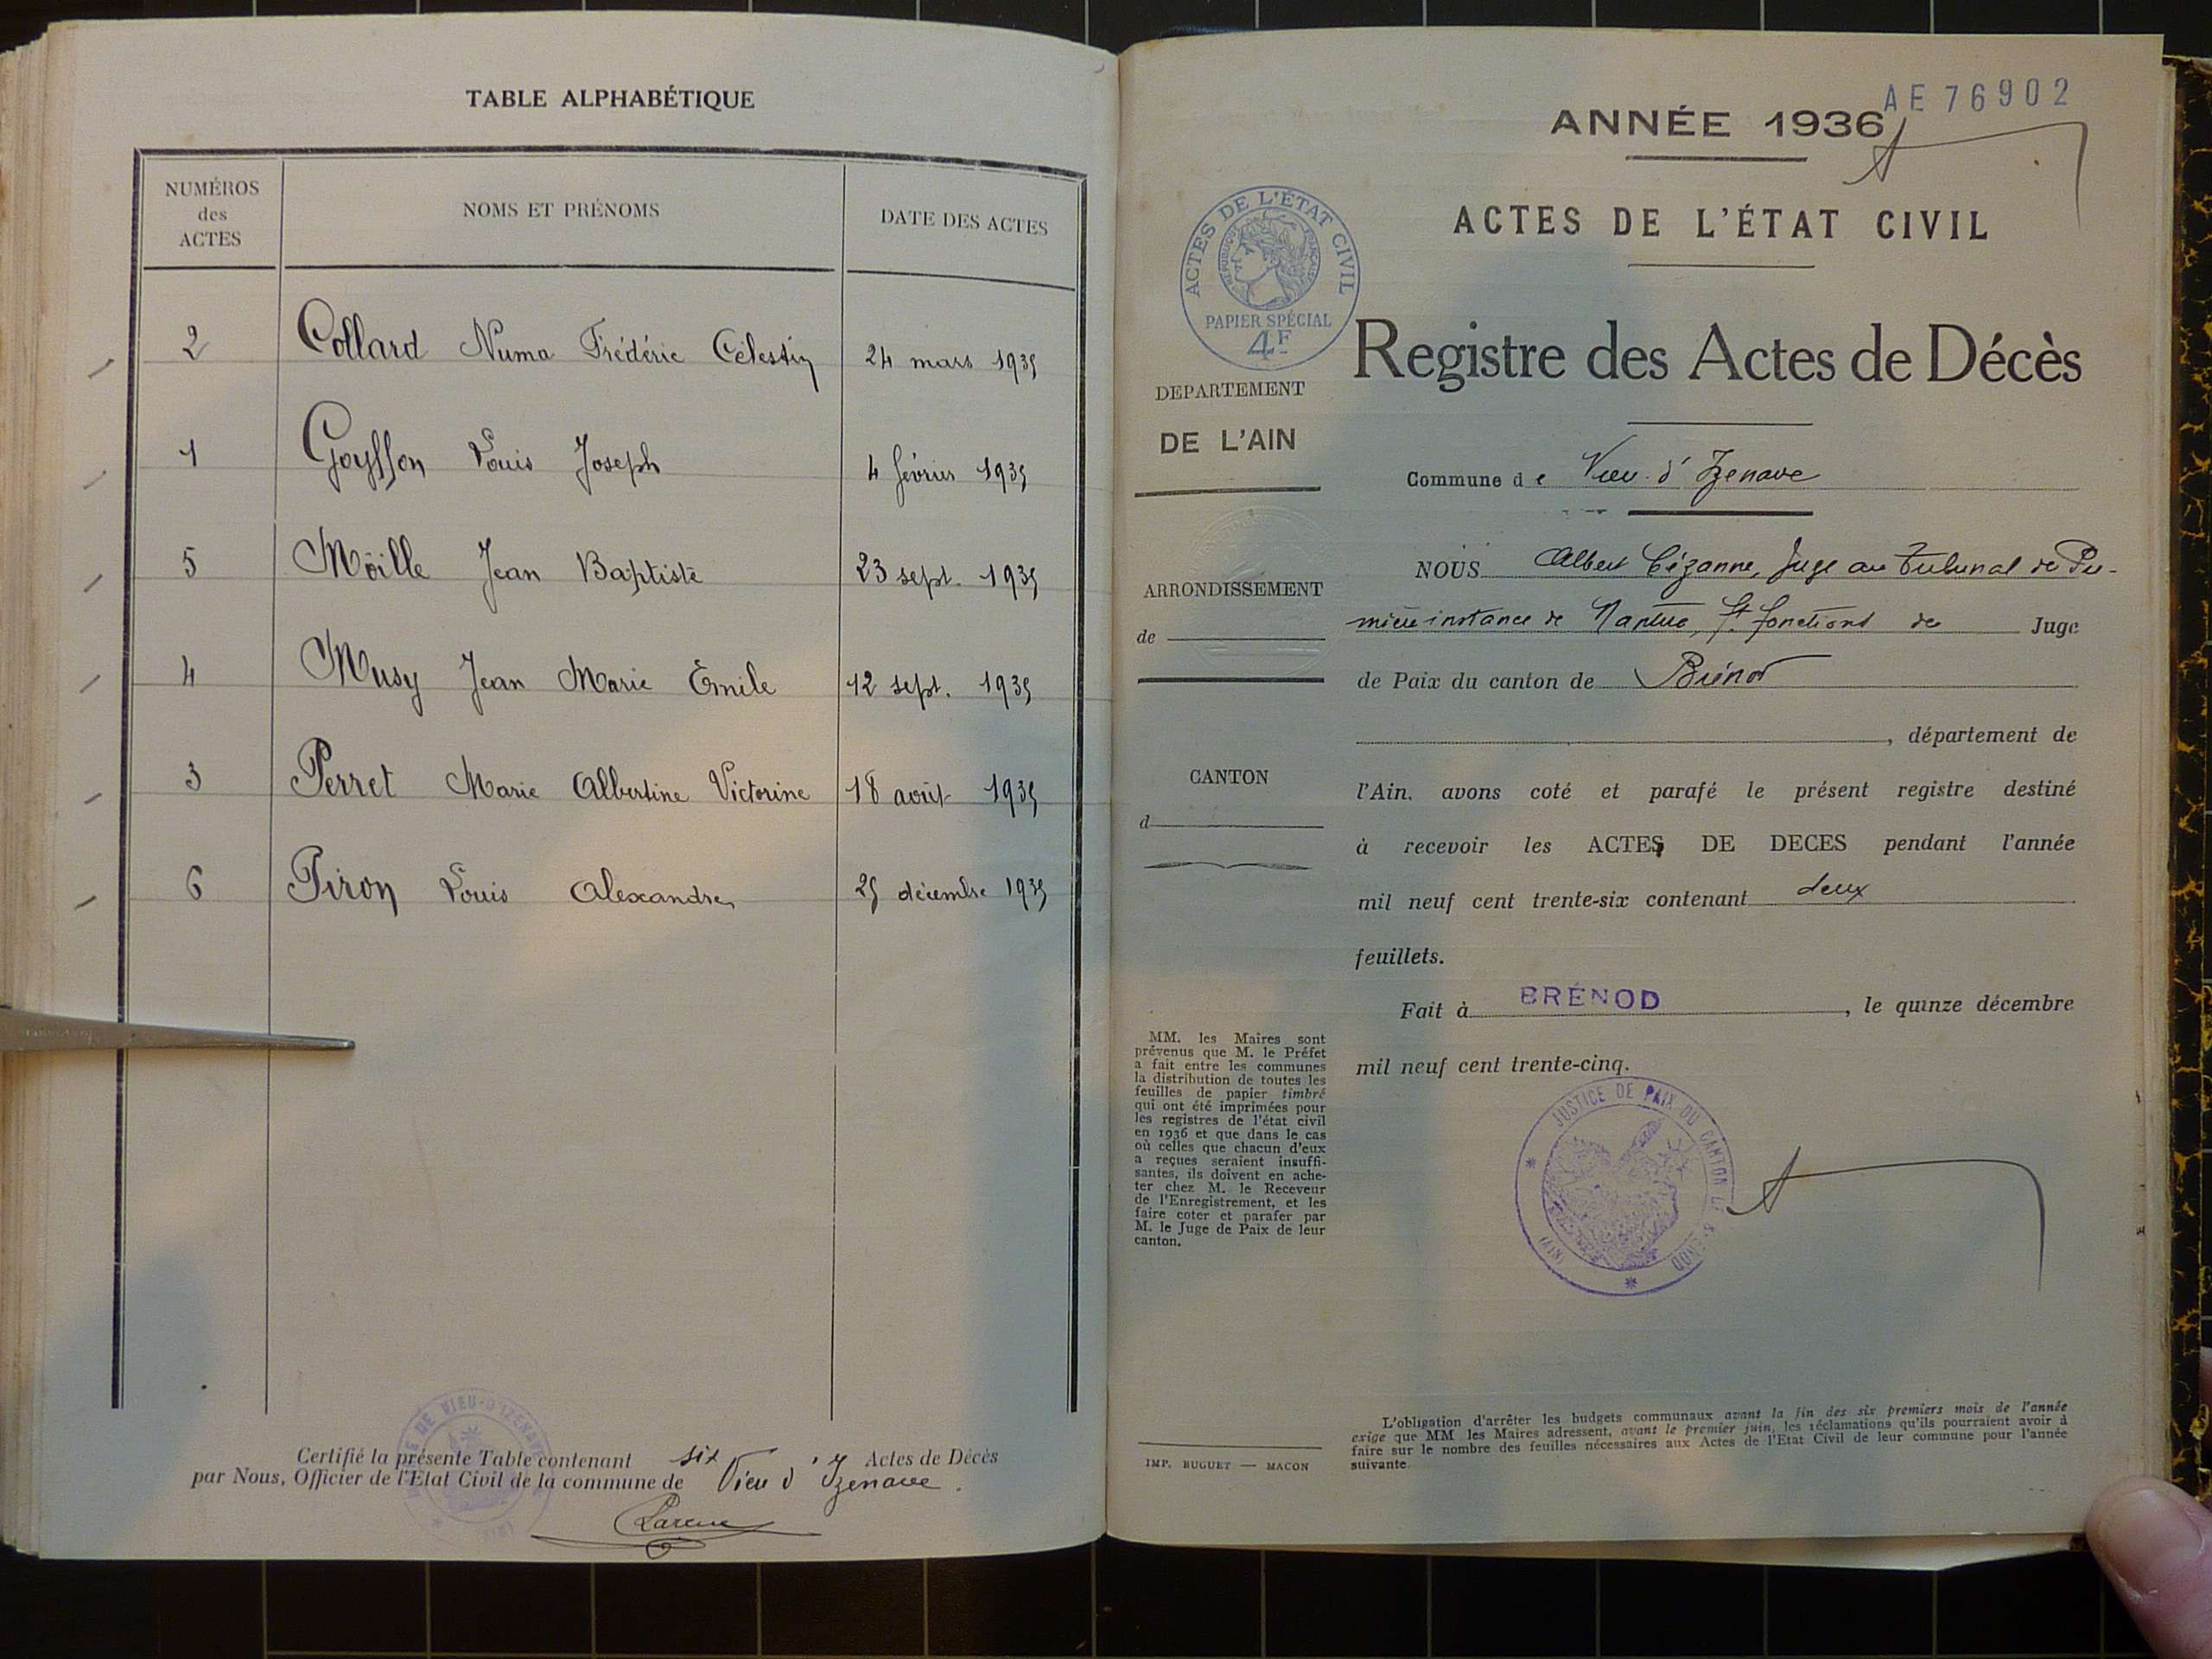 TABLE ALPHABÉTIQUE
NUMÉROS
des
ACTES
NOMS ET PRÉNOMS
DATE DES ACTES
2 Collard Numa Frédéric Célestin 24 mars 1935
1 Goyffon Louis Joseph 4 février 1935
5 Moille Jean Baptiste 23 sept. 1935
4 Musy Jean Marie Emile 12 sept. 1935
3 Perret Marie Albertine Victorine 18 août 1935
6 Piron Louis Alexandre 25 décembre 1935
MAIRIE DE VIEU-D'IZENAVE
Certifié la présente Table contenant six Actes de Décès
par Nous, Officier de l'Etat Civil de la commune de Vieu d'Izenave.
AE 76902
ANNÉE 1936
ACTES DE L'ÉTAT CIVIL
ACTES DE L'ÉTAT CIVIL
RÉPUBLIQUE FRANÇAISE
PAPIER SPÉCIAL
4F
Registre des Actes de Décès
DEPARTEMENT
DE L'AIN
ARRONDISSEMENT
de
CANTON
d
Commune de Vieu-d'Izenave
NOUS Albert Cézanne, Juge au Tribunal de Pre-
mière instance de Nantua, ft fonctions de Juge
de Paix du canton de Brénod
, département de
l'Ain, avons coté et parafé le présent registre destiné
à recevoir les ACTES DE DECES pendant l'année
mil neuf cent trente-six contenant deux
feuillets.
Fait à BRÉNOD, le quinze décembre
mil neuf cent trente-cinq.
JUSTICE DE PAIX DU CANTON DE BRÉNOD
(AIN)
MM. les Maires sont
prévenus que M. le Préfet
a fait entre les communes
la distribution de toutes les
feuilles de papier timbré
qui ont été imprimées pour
les registres de l'état civil
en 1936 et que dans le cas
où celles que chacun d'eux
a reçues seraient insuffi-
santes, ils doivent en ache-
ter chez M. le Receveur
de l'Enregistrement, et les
faire coter et parafer par
M. le Juge de Paix de leur
canton.
IMP. BUGUET — MACON
L'obligation d'arrêter les budgets communaux avant la fin des six premiers mois de l'année
exige que MM. les Maires adressent, avant le premier juin, les réclamations qu'ils pourraient avoir à
faire sur le nombre des feuilles nécessaires aux Actes de l'Etat Civil de leur commune pour l'année
suivante.